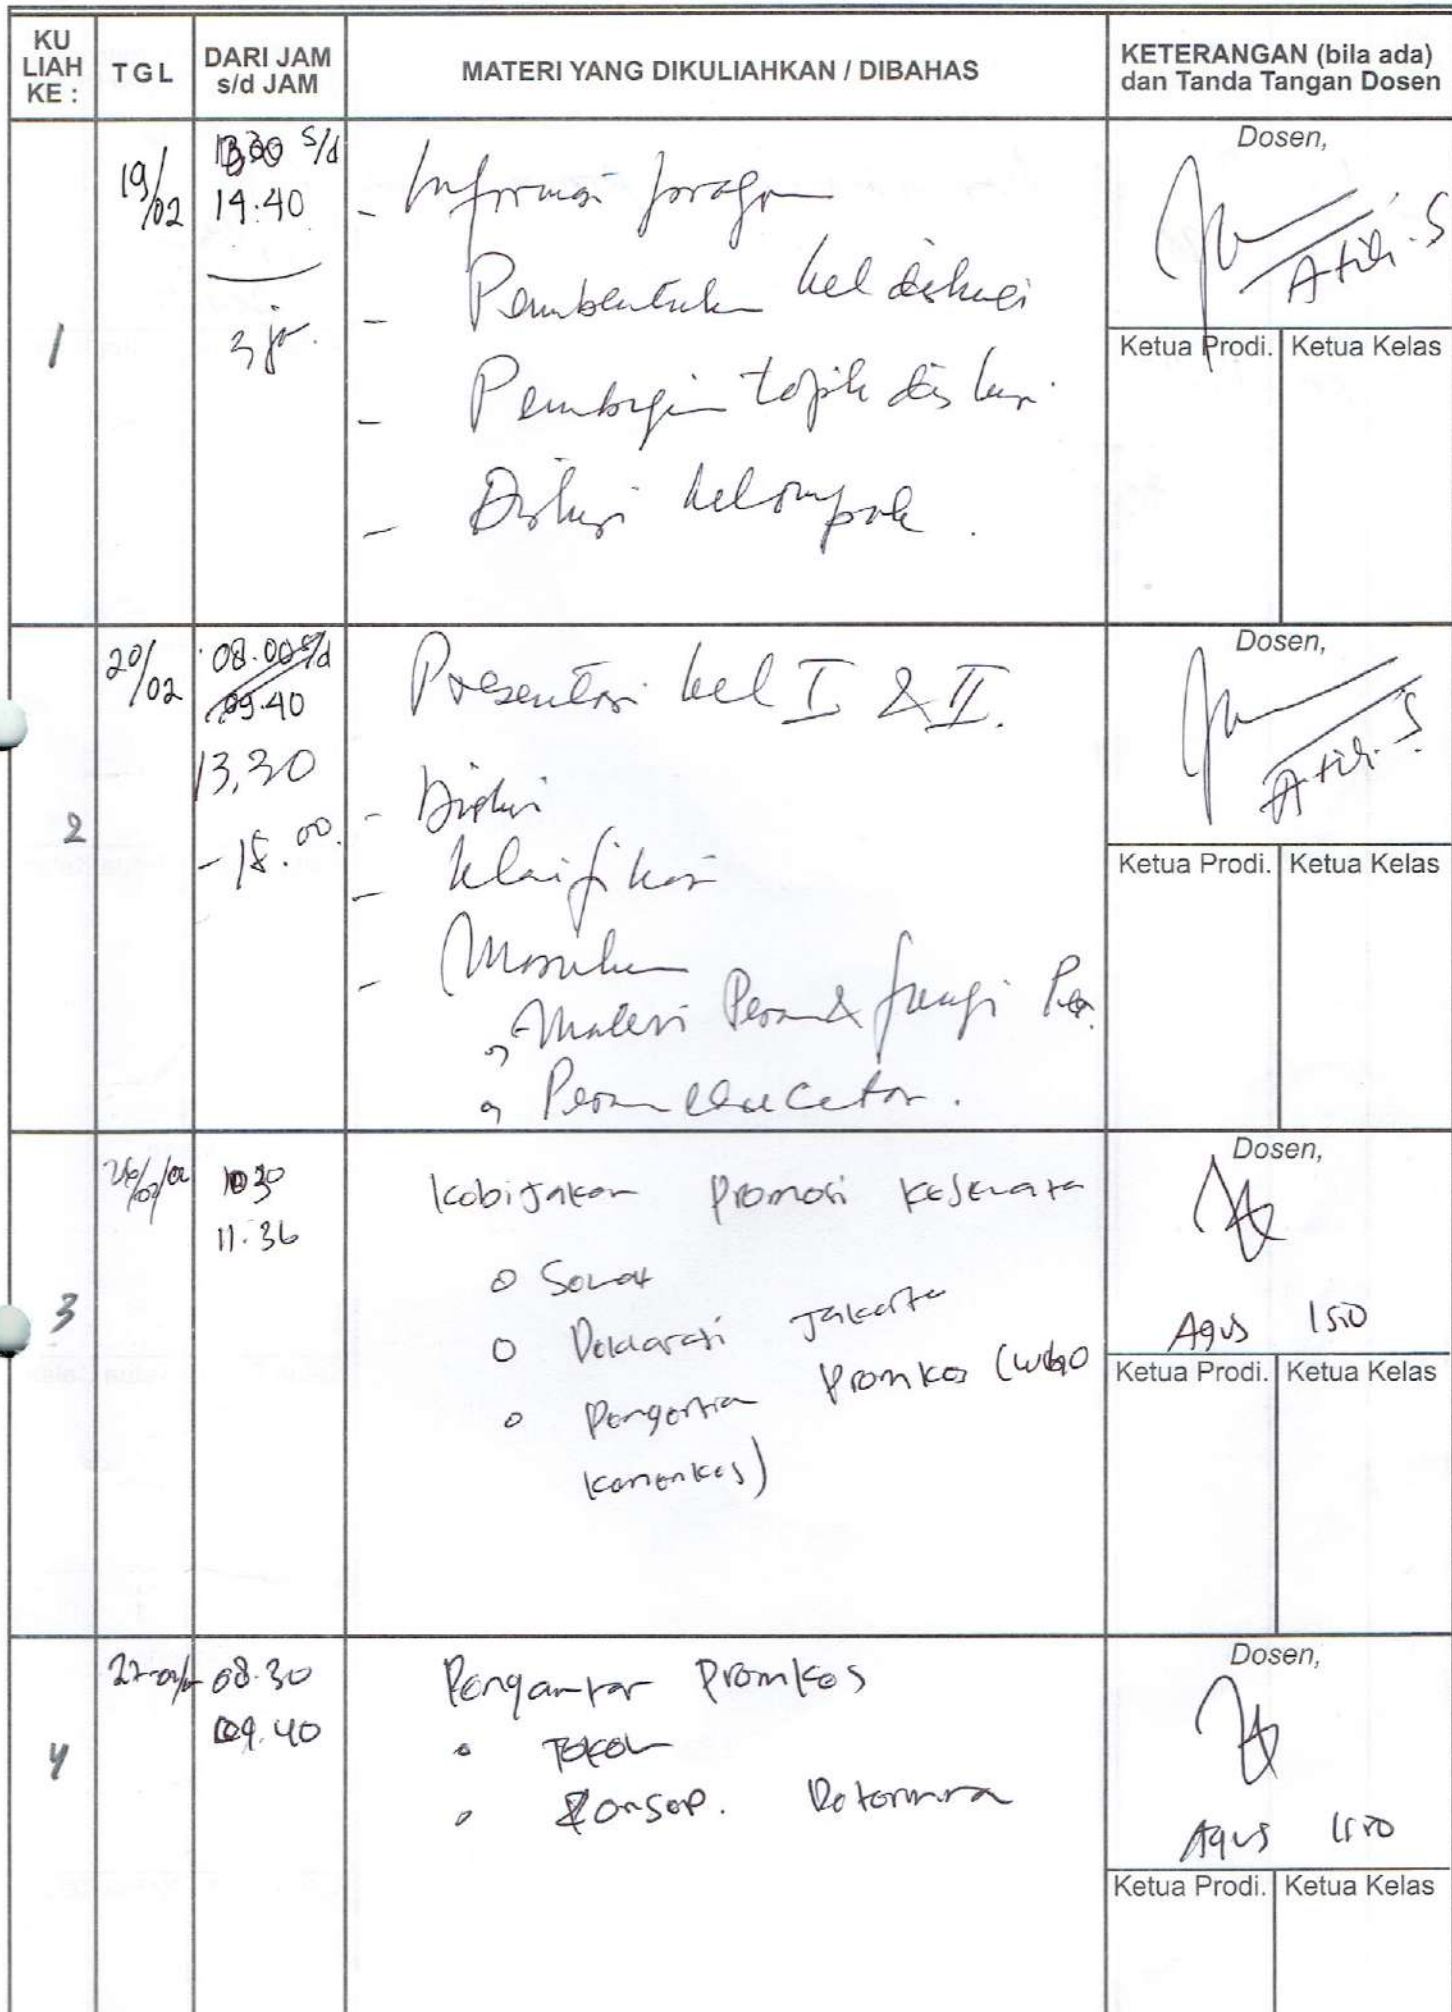 KU LIAH KE :
TGL
DARI JAM s/d JAM
MATERI YANG DIKULIAHKAN / DIBAHAS
KETERANGAN (bila ada) dan Tanda Tangan Dosen
1
19/02
s/d
14.40
- Informasi
- Pembentukan kel diskusi
- Pembagian topik diskusi
- Diskusi kelompok.
Dosen,
Ketua Prodi.
Ketua Kelas
2
20/02
08.00 s/d
09.40
13.30
Presentasi kel I & II.
- Diskusi
- Klarifikasi
- Masukan
Materi Peran & fungsi
Peran educator.
Dosen,
Ketua Prodi.
Ketua Kelas
3
10 30
11.36
Kebijakan Promosi Kesehata
Deklarasi Jakarta
Pengertian Promkes (WHO
Kemenkes)
Dosen,
Agus
Ketua Prodi.
Ketua Kelas
4
08.30
09.40
Pengantar Promkes
Konsep.
Dosen,
Agus
Ketua Prodi.
Ketua Kelas